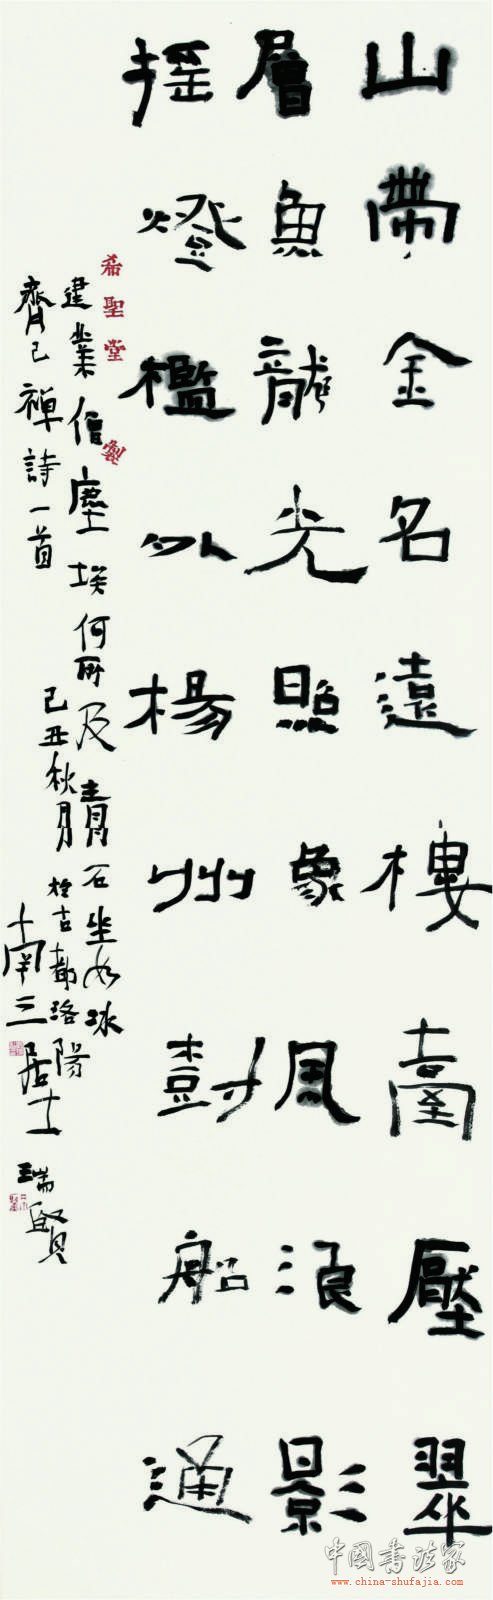 山帶金名遠樓臺壓翠
層魚龍光照象風浪影
搖燈檻外楊州樹船通
建業僧塵埃何所及青石坐如冰
齊己禪詩一首
己丑秋月於古都洛陽
三居士瑞賢
希聖堂製
中國書法家
www.china-shufajia.com